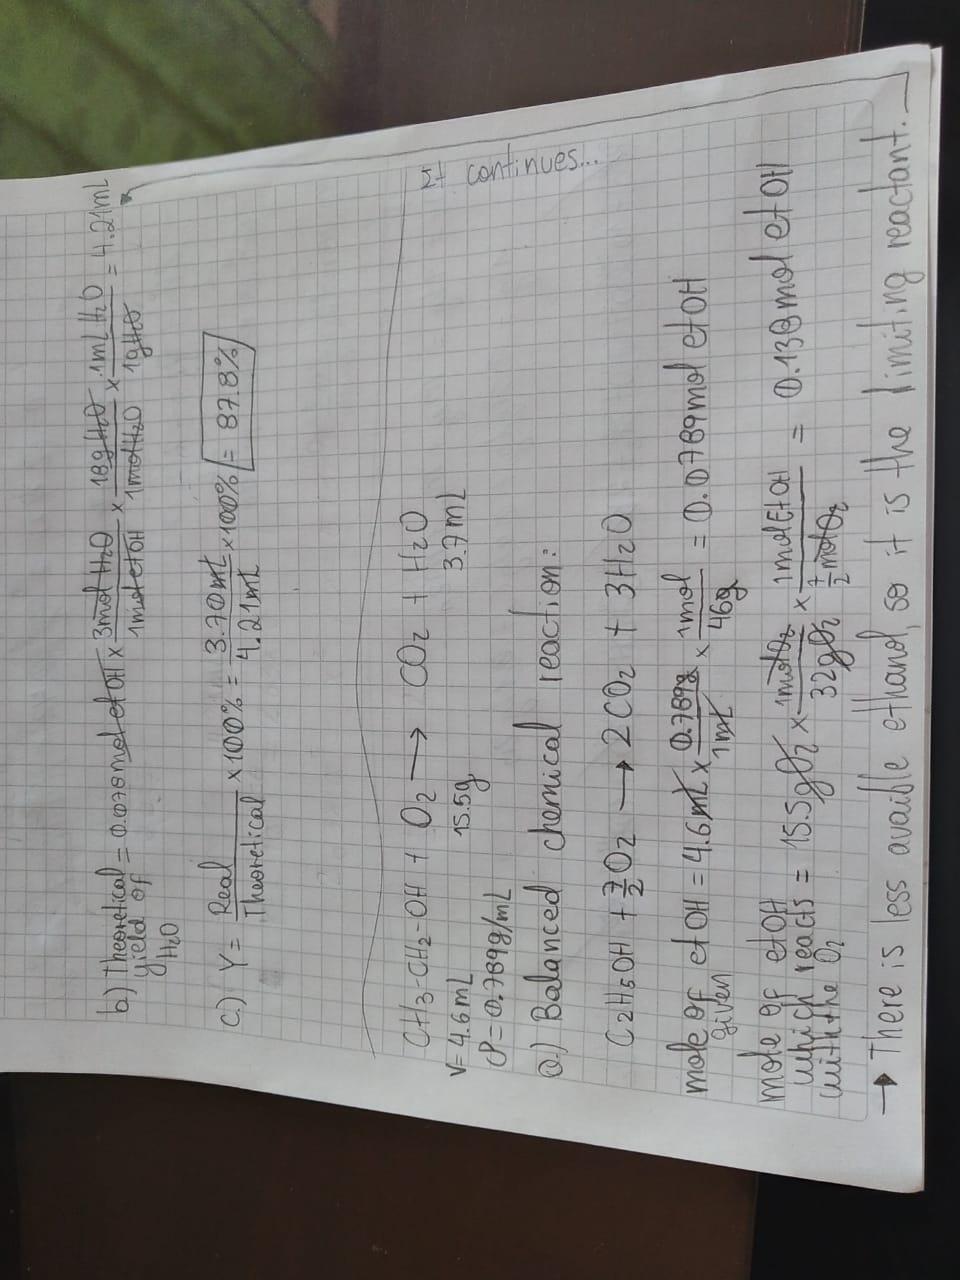 b.) Theoretical yield of H2O = 0.078 mol etOH x 3 mol H2O / 1 mol etOH x 18g H2O / 1 mol H2O x 1 mL H2O / 1g H2O = 4.21 mL
c.) Y = Real / Theoretical x 100% = 3.70 mL / 4.21 mL x 100% = 87.8%
It continues...
CH3-CH2-OH + O2 → CO2 + H2O
V = 4.6 mL 15.5g 3.7 mL
ρ = 0.789g/mL
a.) Balanced chemical reaction:
C2H5OH + 7/2 O2 → 2CO2 + 3H2O
mole of etOH given = 4.6 mL x 0.789g / 1 mL x 1 mol / 46g = 0.0789 mol etOH
mole of etOH which reacts with the O2 = 15.5 g O2 x 1 mol O2 / 32 g O2 x 1 mol EtOH / 7/2 mol O2 = 0.138 mol etOH
→ There is less avaible ethanol, so it is the limiting reactant.